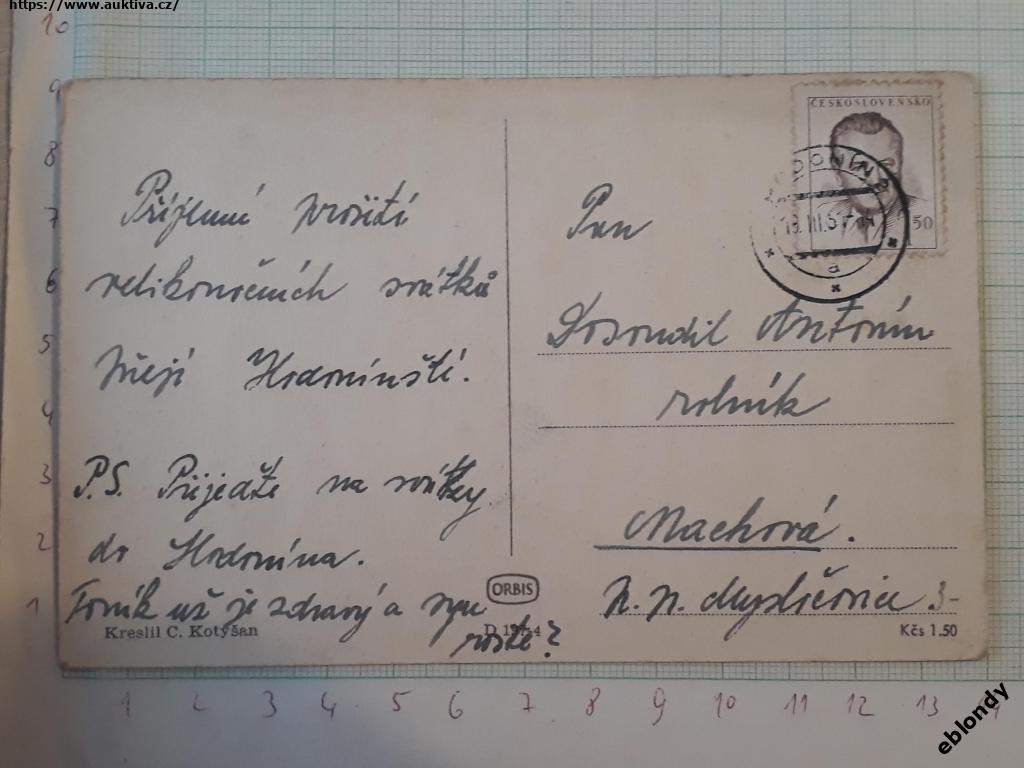 https://www.auktiva.cz/
10
9
8
7
6
5
4
3
2
1
Příjemné prožití
velikonočních svátků
přejí Hodonínští.
P.S. Přijeďte na svátky
do Hodonína.
Toník už je zdravý a
roste?
Kreslil C. Kotyšan
ORBIS
ČESKOSLOVENSKO
1,50
HODONÍN
a
Pan
Antonín
rolník
Machová.
Kčs 1.50
1 2 3 4 5 6 7 8 9 10 11 12 13
eblondy